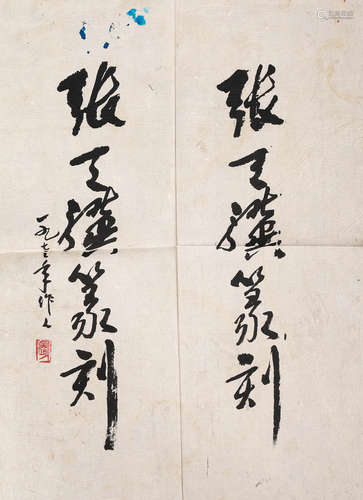 張天驥篆刻
張天驥篆刻
一九七三年作人